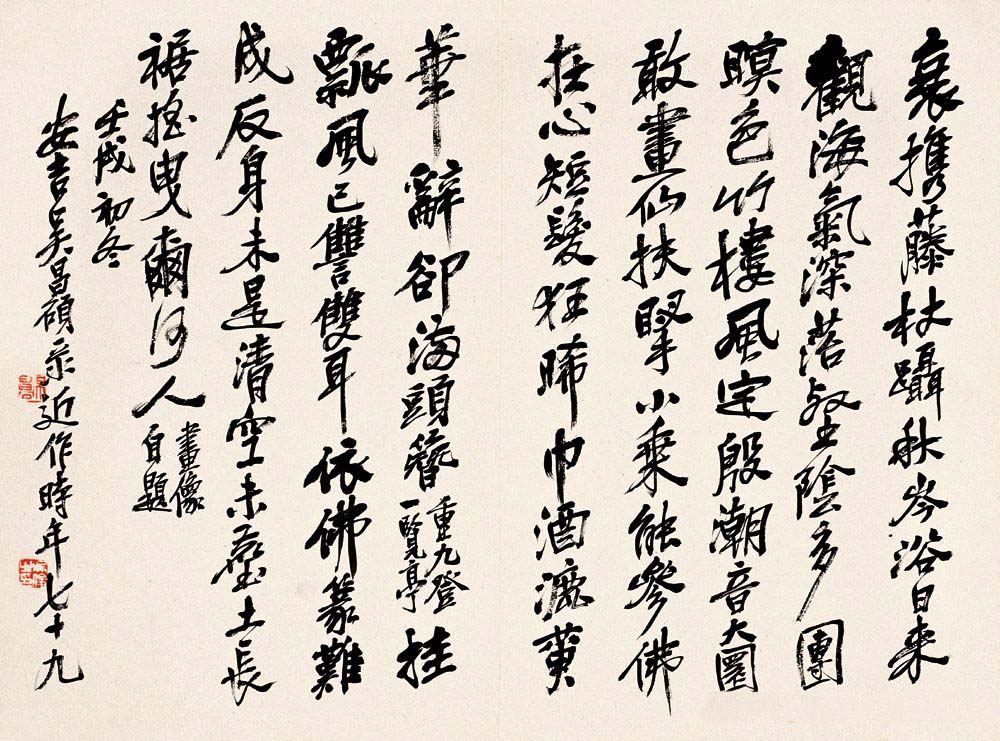 衰携藤杖躡秋岑浴日来
觀海氣深落叡陰多團
暝色竹樓風定殷潮音大圜
敢畫仙扶掔小乘能參佛
在心短髮狂晞巾酒漉黄
華辭卻海頭簪重九登一覽亭挂
瓢風已讐雙耳依佛篆難
成反身未是清空未蜕土長
裾搖曳爾何人畫像自題
壬戌初冬
安吉吴昌碩录近作時年七十九